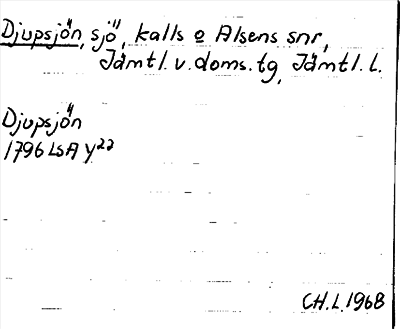 Djupsjön, sjö, Kalls o Alsens snr,
Jämtl. v. doms. tg, Jämtl. L.
Djupsjön
1796 LSA Y22
CH.L.1968